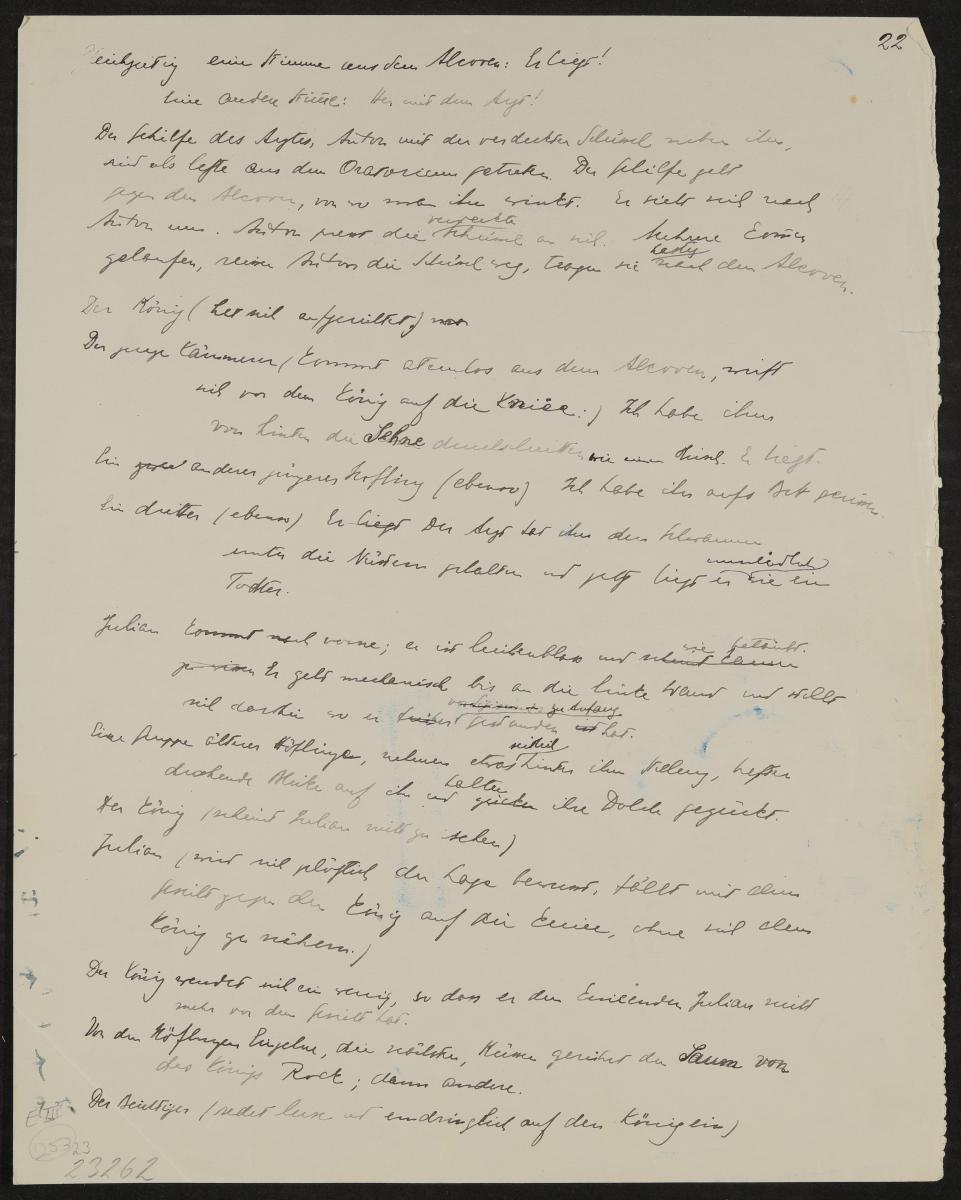 22
eine Stimme aus dem Alcoven: Er liegt!
Eine andere Stimme: Her mit dem Arzt!
Der Gehilfe des Arztes, Anton mit der verdeckten Schüssel neben ihm,
sind als letzte aus dem Oratorium getreten. Der Gehilfe geht
gegen den Alcoven, von wo man ihm winkt. Er sieht sich nach
Anton um. Anton presst die verdeckte Schüssel an sich. Mehrere kommen
gelaufen, reissen Anton die Schüssel weg, tragen sie hastig nach dem Alcoven.
Der König (hat sich aufgerichtet)
Der junge Kämmerer (kommt atemlos aus dem Alcoven, wirft
sich vor dem König auf die Kniee:) Ich habe ihm
von hinten die Sehne durchschnitten wie einem Hirsch. Er liegt.
Ein anderer jüngerer Höfling (ebenso) Ich habe ihn aufs Bett gerissen.
Ein dritter (ebenso) Er liegt Der Arzt hat ihm den Schwamm
unter die Nüstern gehalten und jetzt liegt er wie ein
Todter.
Julian kommt nach vorne; er ist leichenblass und wie betäubt.
Er geht mechanisch bis an die linke Wand und stellt
sich dorthin wo er gestanden hat.
Eine Gruppe älterer Höflinge, nehmen etwas seitlich hinter ihm Stellung, heften
drohende Blicke auf ihn und halten ihre Dolche gezückt.
Der König (scheint Julian nicht zu sehen)
Julian (wird sich plötzlich der Lage bewusst, fällt mit dem
Gesicht gegen den König auf die Kniee, ohne sich dem
König zu nähern.)
Der König wendet sich ein wenig, so dass er den knieenden Julian nicht
mehr vor dem Gesicht hat.
Von den Höflingen Einzelne, die nächsten, küssen gerührt den Saum von
des Königs Rock; dann andere.
Der Beichtiger (redet leise und eindringlich auf den König ein)
E III
23262